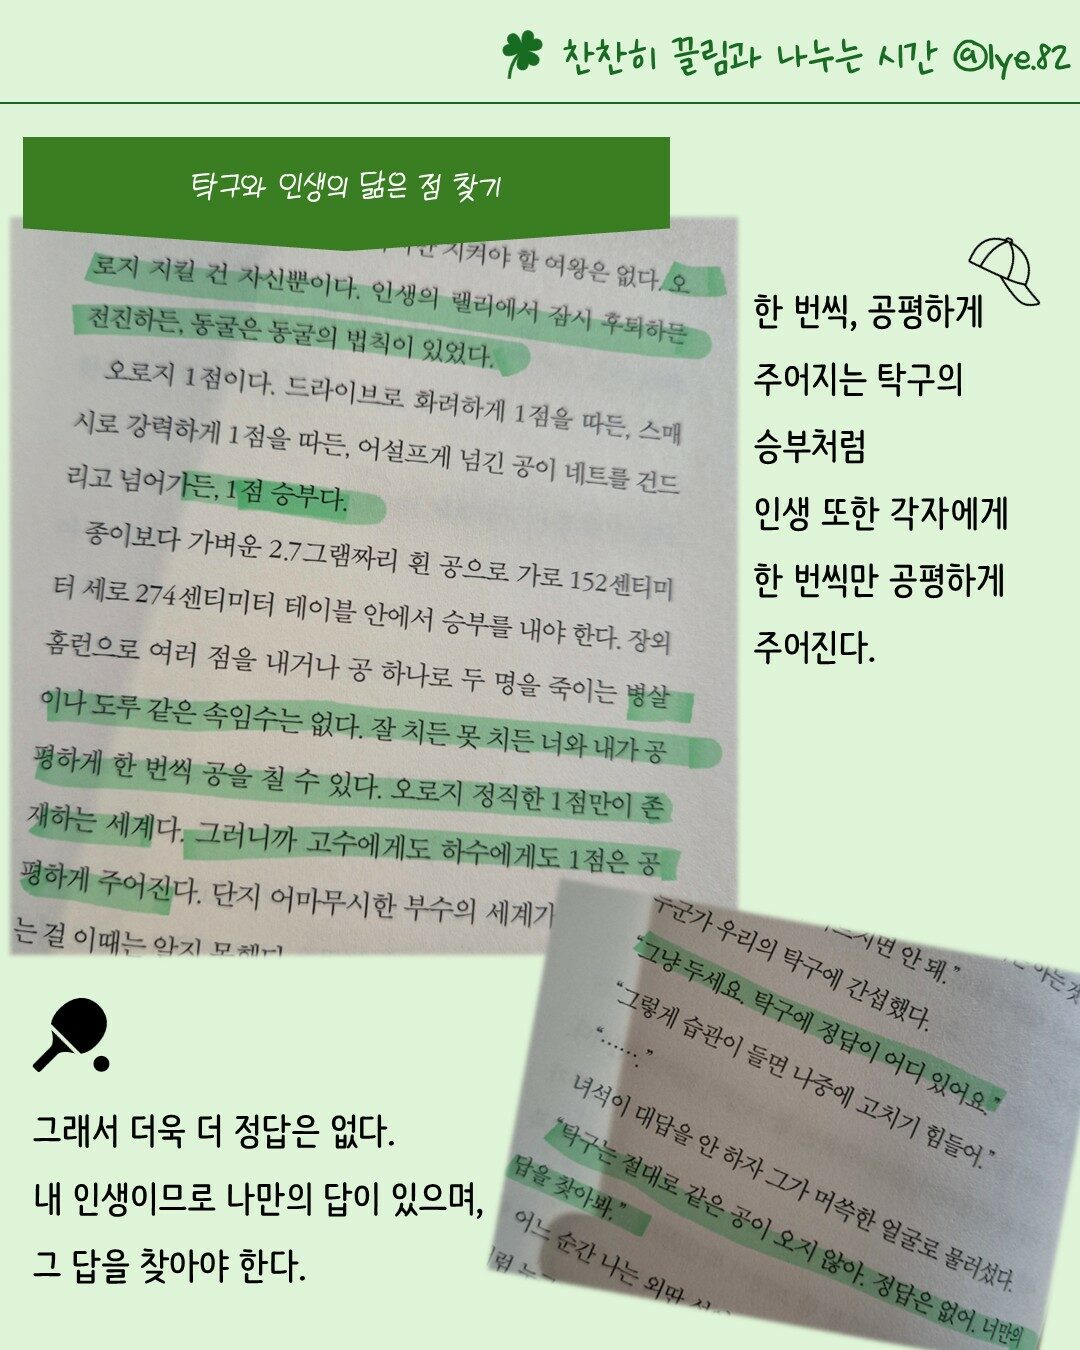 찬찬히 끌림과 나누는 시간 @lye.82
탁구와 인생의 닮은 점 찾기
지켜야 할 여왕은 없다. 오
로지 지킬 건 자신뿐이다. 인생의 랠리에서 잠시 후퇴하든
전진하든, 동굴은 동굴의 법칙이 있었다.
오로지 1점이다. 드라이브로 화려하게 1점을 따든, 스매
시로 강력하게 1점을 따든, 어설프게 넘긴 공이 네트를 건드
리고 넘어가든, 1점 승부다.
종이보다 가벼운 2.7그램짜리 흰 공으로 가로 152센티미
터 세로 274센티미터 테이블 안에서 승부를 내야 한다. 장외
홈런으로 여러 점을 내거나 공 하나로 두 명을 죽이는 병살
이나 도루 같은 속임수는 없다. 잘 치든 못 치든 너와 내가 공
평하게 한 번씩 공을 칠 수 있다. 오로지 정직한 1점만이 존
재하는 세계다. 그러니까 고수에게도 하수에게도 1점은 공
평하게 주어진다. 단지 어마무시한 부수의 세계가
는 걸 이때는 알지 못했다
한 번씩, 공평하게
주어지는 탁구의
승부처럼
인생 또한 각자에게
한 번씩만 공평하게
주어진다.
안 돼."
누군가 우리의 탁구에 간섭했다.
"그냥 두세요. 탁구에 정답이 어디 있어요."
"그렇게 습관이 들면 나중에 고치기 힘들어."
"……."
녀석이 대답을 안 하자 그가 머쓱한 얼굴로 물러섰다.
"탁구는 절대로 같은 공이 오지 않아. 정답은 없어. 너만의
답을 찾아봐."
어느 순간 나는 외딴
그래서 더욱 더 정답은 없다.
내 인생이므로 나만의 답이 있으며,
그 답을 찾아야 한다.